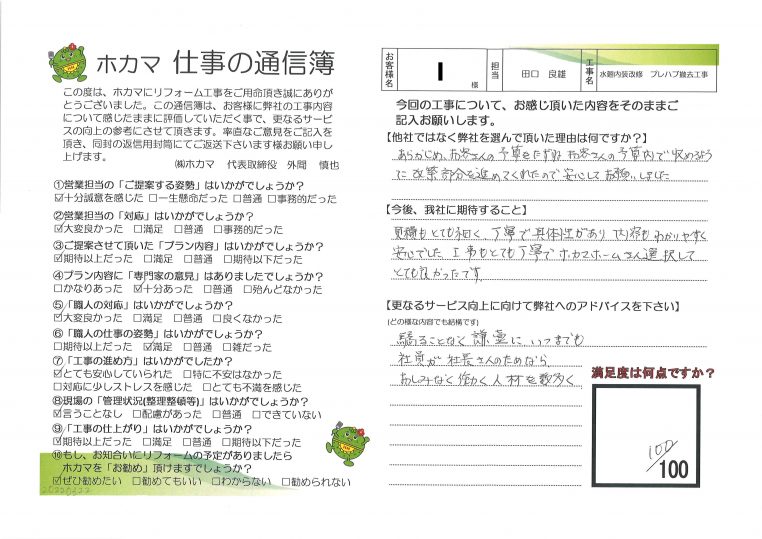 ホカマ 仕事の通信簿
この度は、ホカマにリフォーム工事をご用命頂き誠にありが
とうございました。この通信簿は、お客様に弊社の工事内容
について感じたままに評価していただく事で、更なるサービ
スの向上の参考にさせて頂きます。率直なご意見をご記入を
頂き、同封の返信用封筒にてご返送下さいます様お願い申し
上げます。
㈱ホカマ 代表取締役 外間 慎也
①営業担当の「ご提案する姿勢」はいかがでしょうか?
☑十分誠意を感じた □一生懸命だった □普通 □事務的だった
②営業担当の「対応」はいかがでしょうか?
☑大変良かった □満足 □普通 □事務的だった
③ご提案させて頂いた「プラン内容」はいかがでしょうか?
☑期待以上だった □満足 □普通 □期待以下だった
④プラン内容に「専門家の意見」はありましたでしょうか?
□かなりあった ☑十分あった □普通 □殆んどなかった
⑤「職人の対応」はいかがでしょうか?
☑大変良かった □満足 □普通 □良くなかった
⑥「職人の仕事の姿勢」はいかがでしょうか?
□期待以上だった ☑満足 □普通 □雑だった
⑦「工事の進め方」はいかがでしたか?
☑とても安心していられた □特に不安はなかった
□対応に少しストレスを感じた □とても不満を感じた
⑧現場の「管理状況(整理整頓等)」はいかがでしょうか?
☑言うことなし □配慮があった □普通 □できていない
⑨「工事の仕上がり」はいかがでしょうか?
☑期待以上だった □満足 □普通 □期待以下だった
⑩もし、お知合いにリフォームの予定がありましたら
ホカマを「お勧め」頂けますでしょうか?
☑ぜひ勧めたい □勧めてもいい □わからない □勧められない
お客様名 I 様 担当 田口 良雄 工事名 水廻内装改修 プレハブ撤去工事
今回の工事について、お感じ頂いた内容をそのままご
記入お願いします。
【他社ではなく弊社を選んで頂いた理由は何ですか?】
あらかじめ、お客さんの予算をたずねお客さんの予算内で収めるよう
に改築部分を進めてくれたので安心してお願いしました
【今後、我社に期待すること】
見積もとても細く、丁寧で具体性があり内容もわかりやすく
安心でした 工事もとても丁寧でホカマホームさん選択して
とても良かったです
【更なるサービス向上に向けて弊社へのアドバイスを下さい】
(どの様な内容でも結構です)
驕ることなく謙虚にいつまでも
社員が社長さんのためなら、
おしみなく働く人材を数多く
満足度は何点ですか?
100
/100